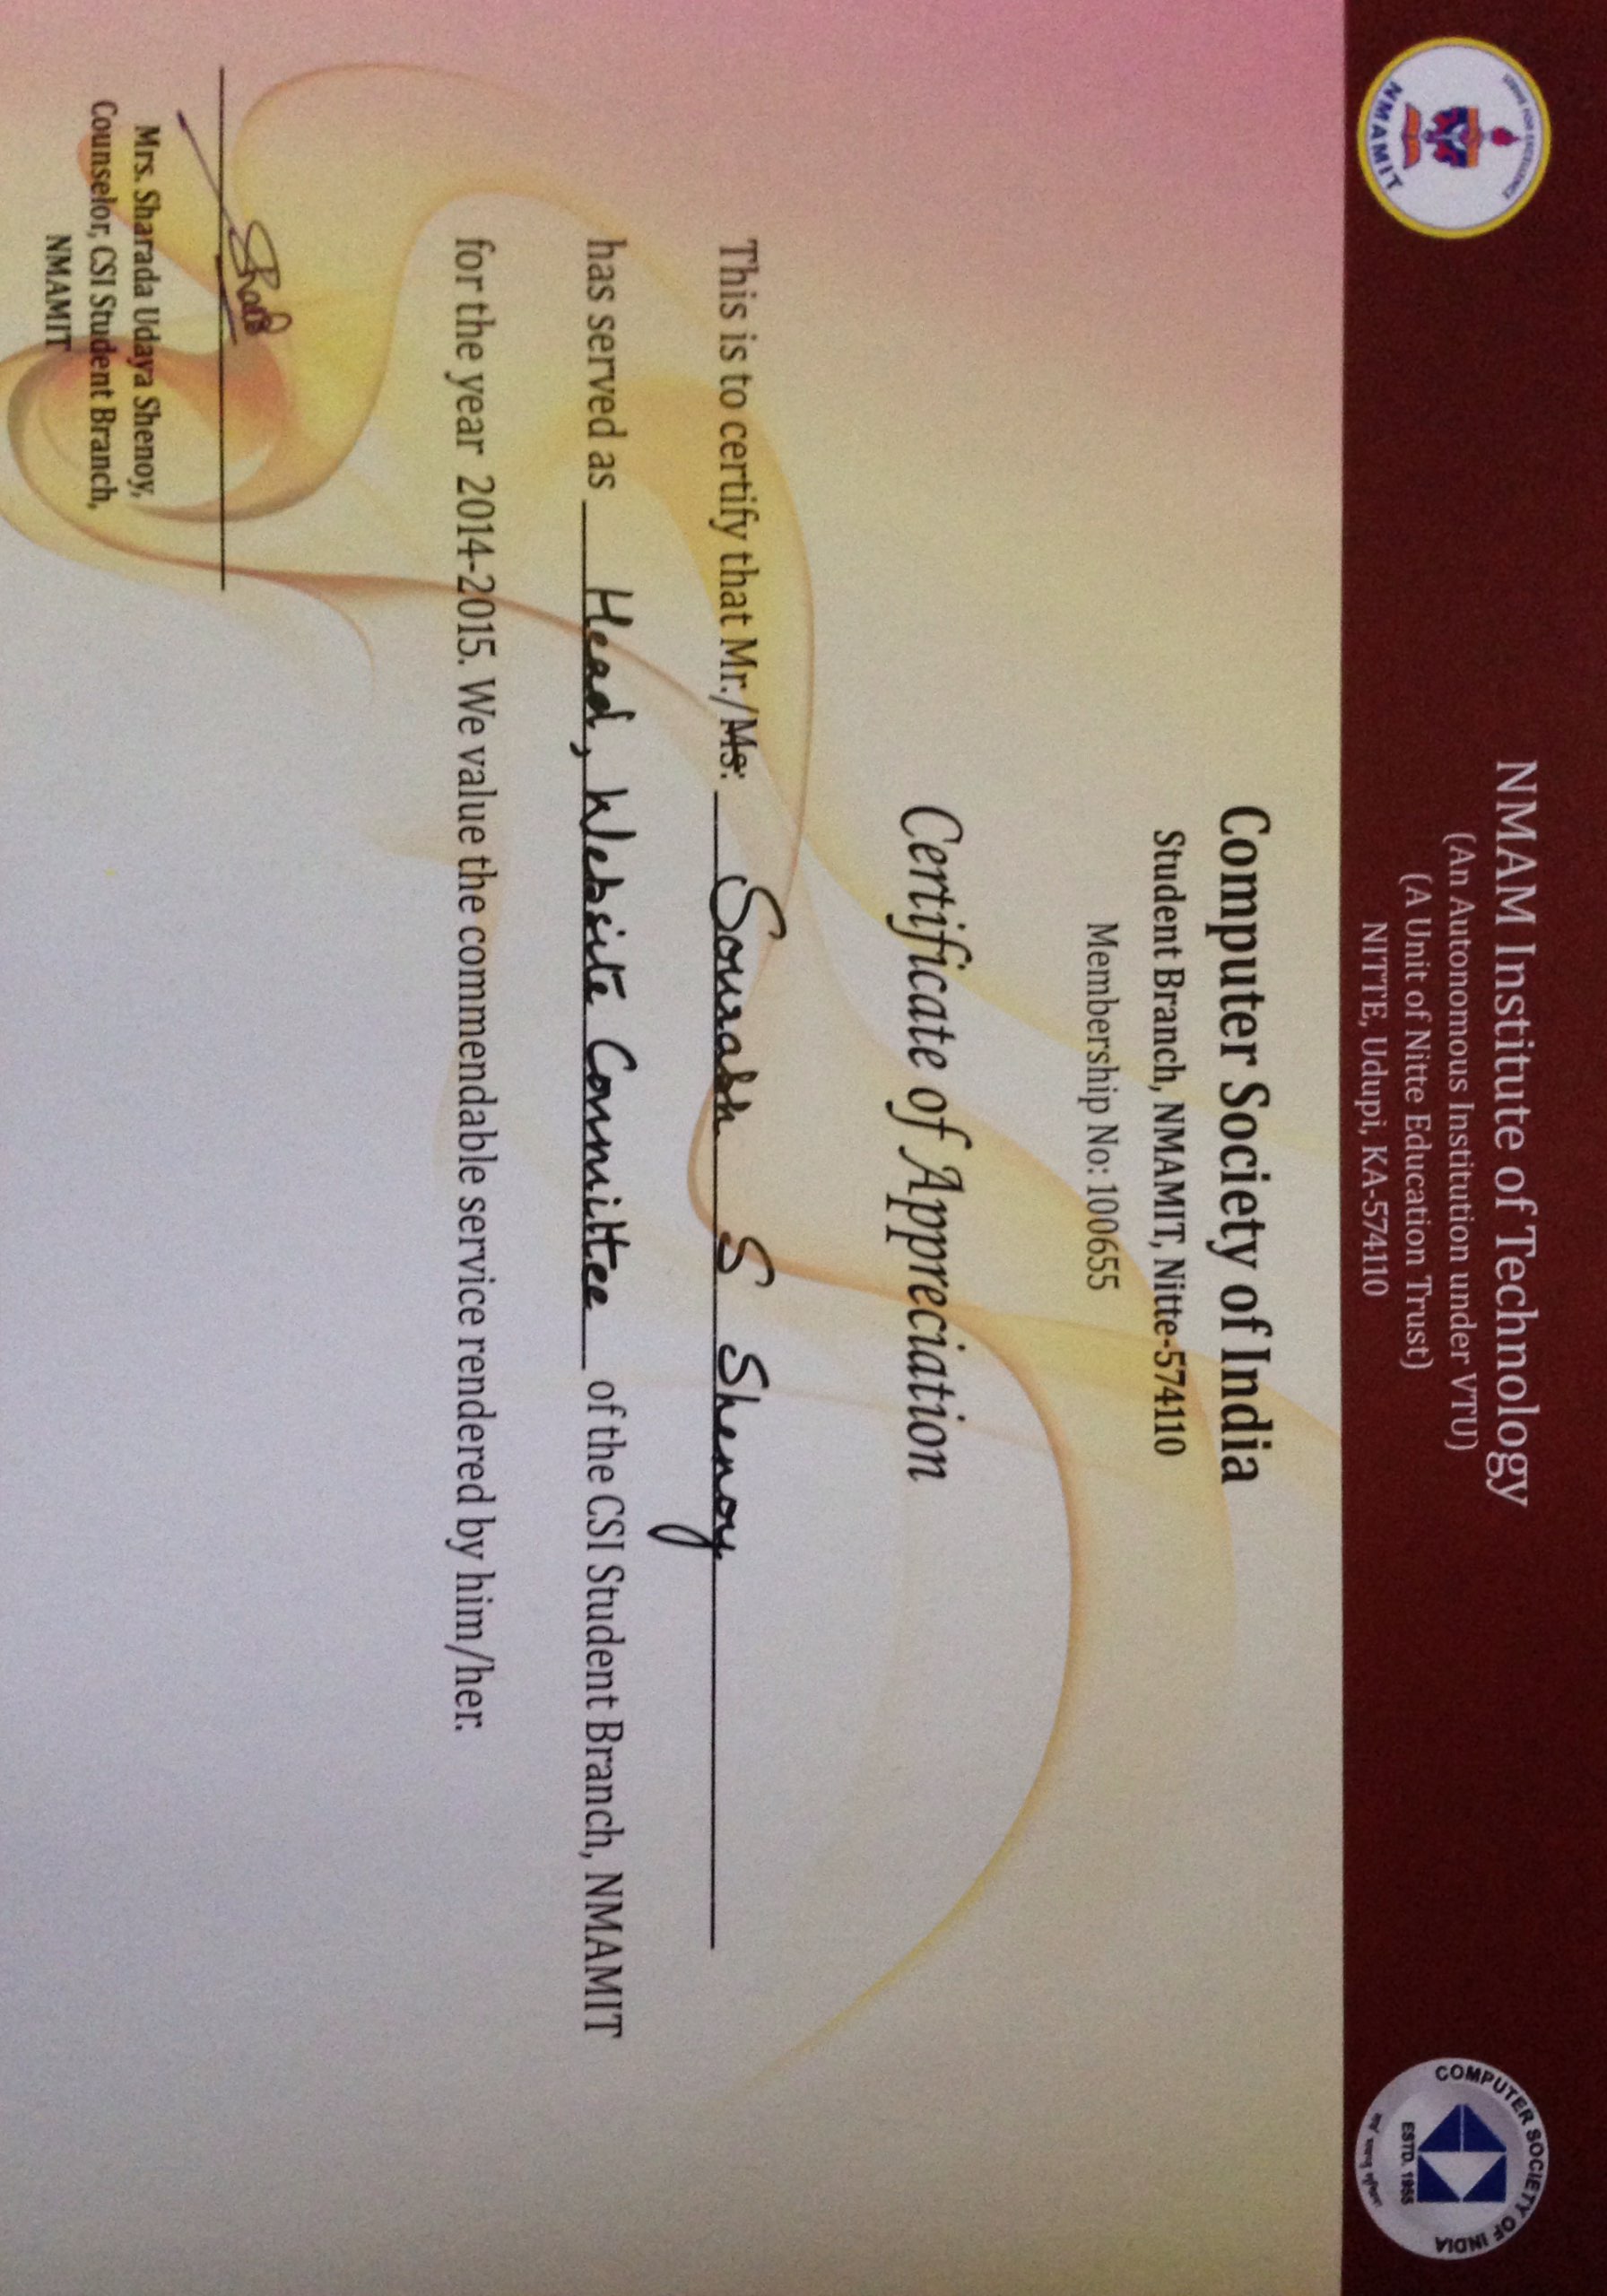 STRIVE FOR EXCELLENCE
NMAMIT
NMAM Institute of Technology
(An Autonomous Institution under VTU)
(A Unit of Nitte Education Trust)
NITTE, Udupi, KA-574110
COMPUTER SOCIETY OF INDIA
ESTD. 1965
Computer Society of India
Student Branch, NMAMIT, Nitte-574110
Membership No: 100655
Certificate of Appreciation
This is to certify that Mr./Ms: Sourabh S Shenoy
has served as Head, Website Committee of the CSI Student Branch, NMAMIT
for the year 2014-2015. We value the commendable service rendered by him/her.
Mrs. Sharada Udaya Shenoy,
Counselor, CSI Student Branch,
NMAMIT